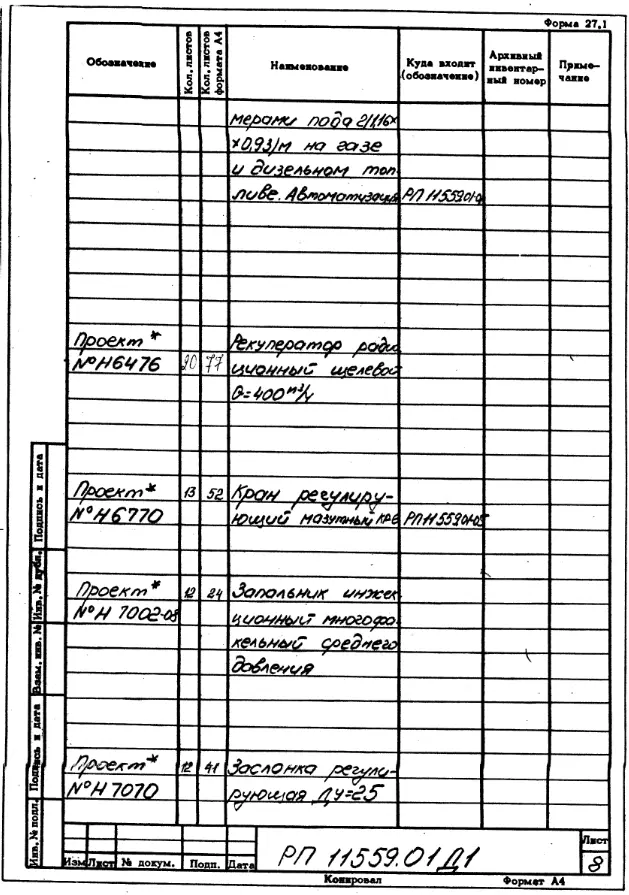 Форма 27.1
Обозначение Кол. листов Кол. листов формата А4 Наименование Куда входит (обозначение) Архивный инвентарный номер Примечание
мерами пода 2(1,16×
×0,93)м на газе
и дизельном топ-
ливе. Автоматизация
Проект* Рекуператор ради
№ Н6476 20 77 ционный щелевой
Q=400 м³/ч
Проект* 13 52 Кран регулиру-
№ Н6770 ющий мазутный
Проект* 12 24 Запальник инжек
№ Н 7002-08 ционный многофа
кельный среднего
давления
Проект* 12 41 Заслонка регули-
№ Н 7070 рующая Ду=25
Инв. № подл. Подпись и дата Взам. инв. № Инв. № дубл. Подпись и дата
Изм Лист № докум. Подп. Дата РП 11559.01Д1 Лист
8
Копировал Формат А4